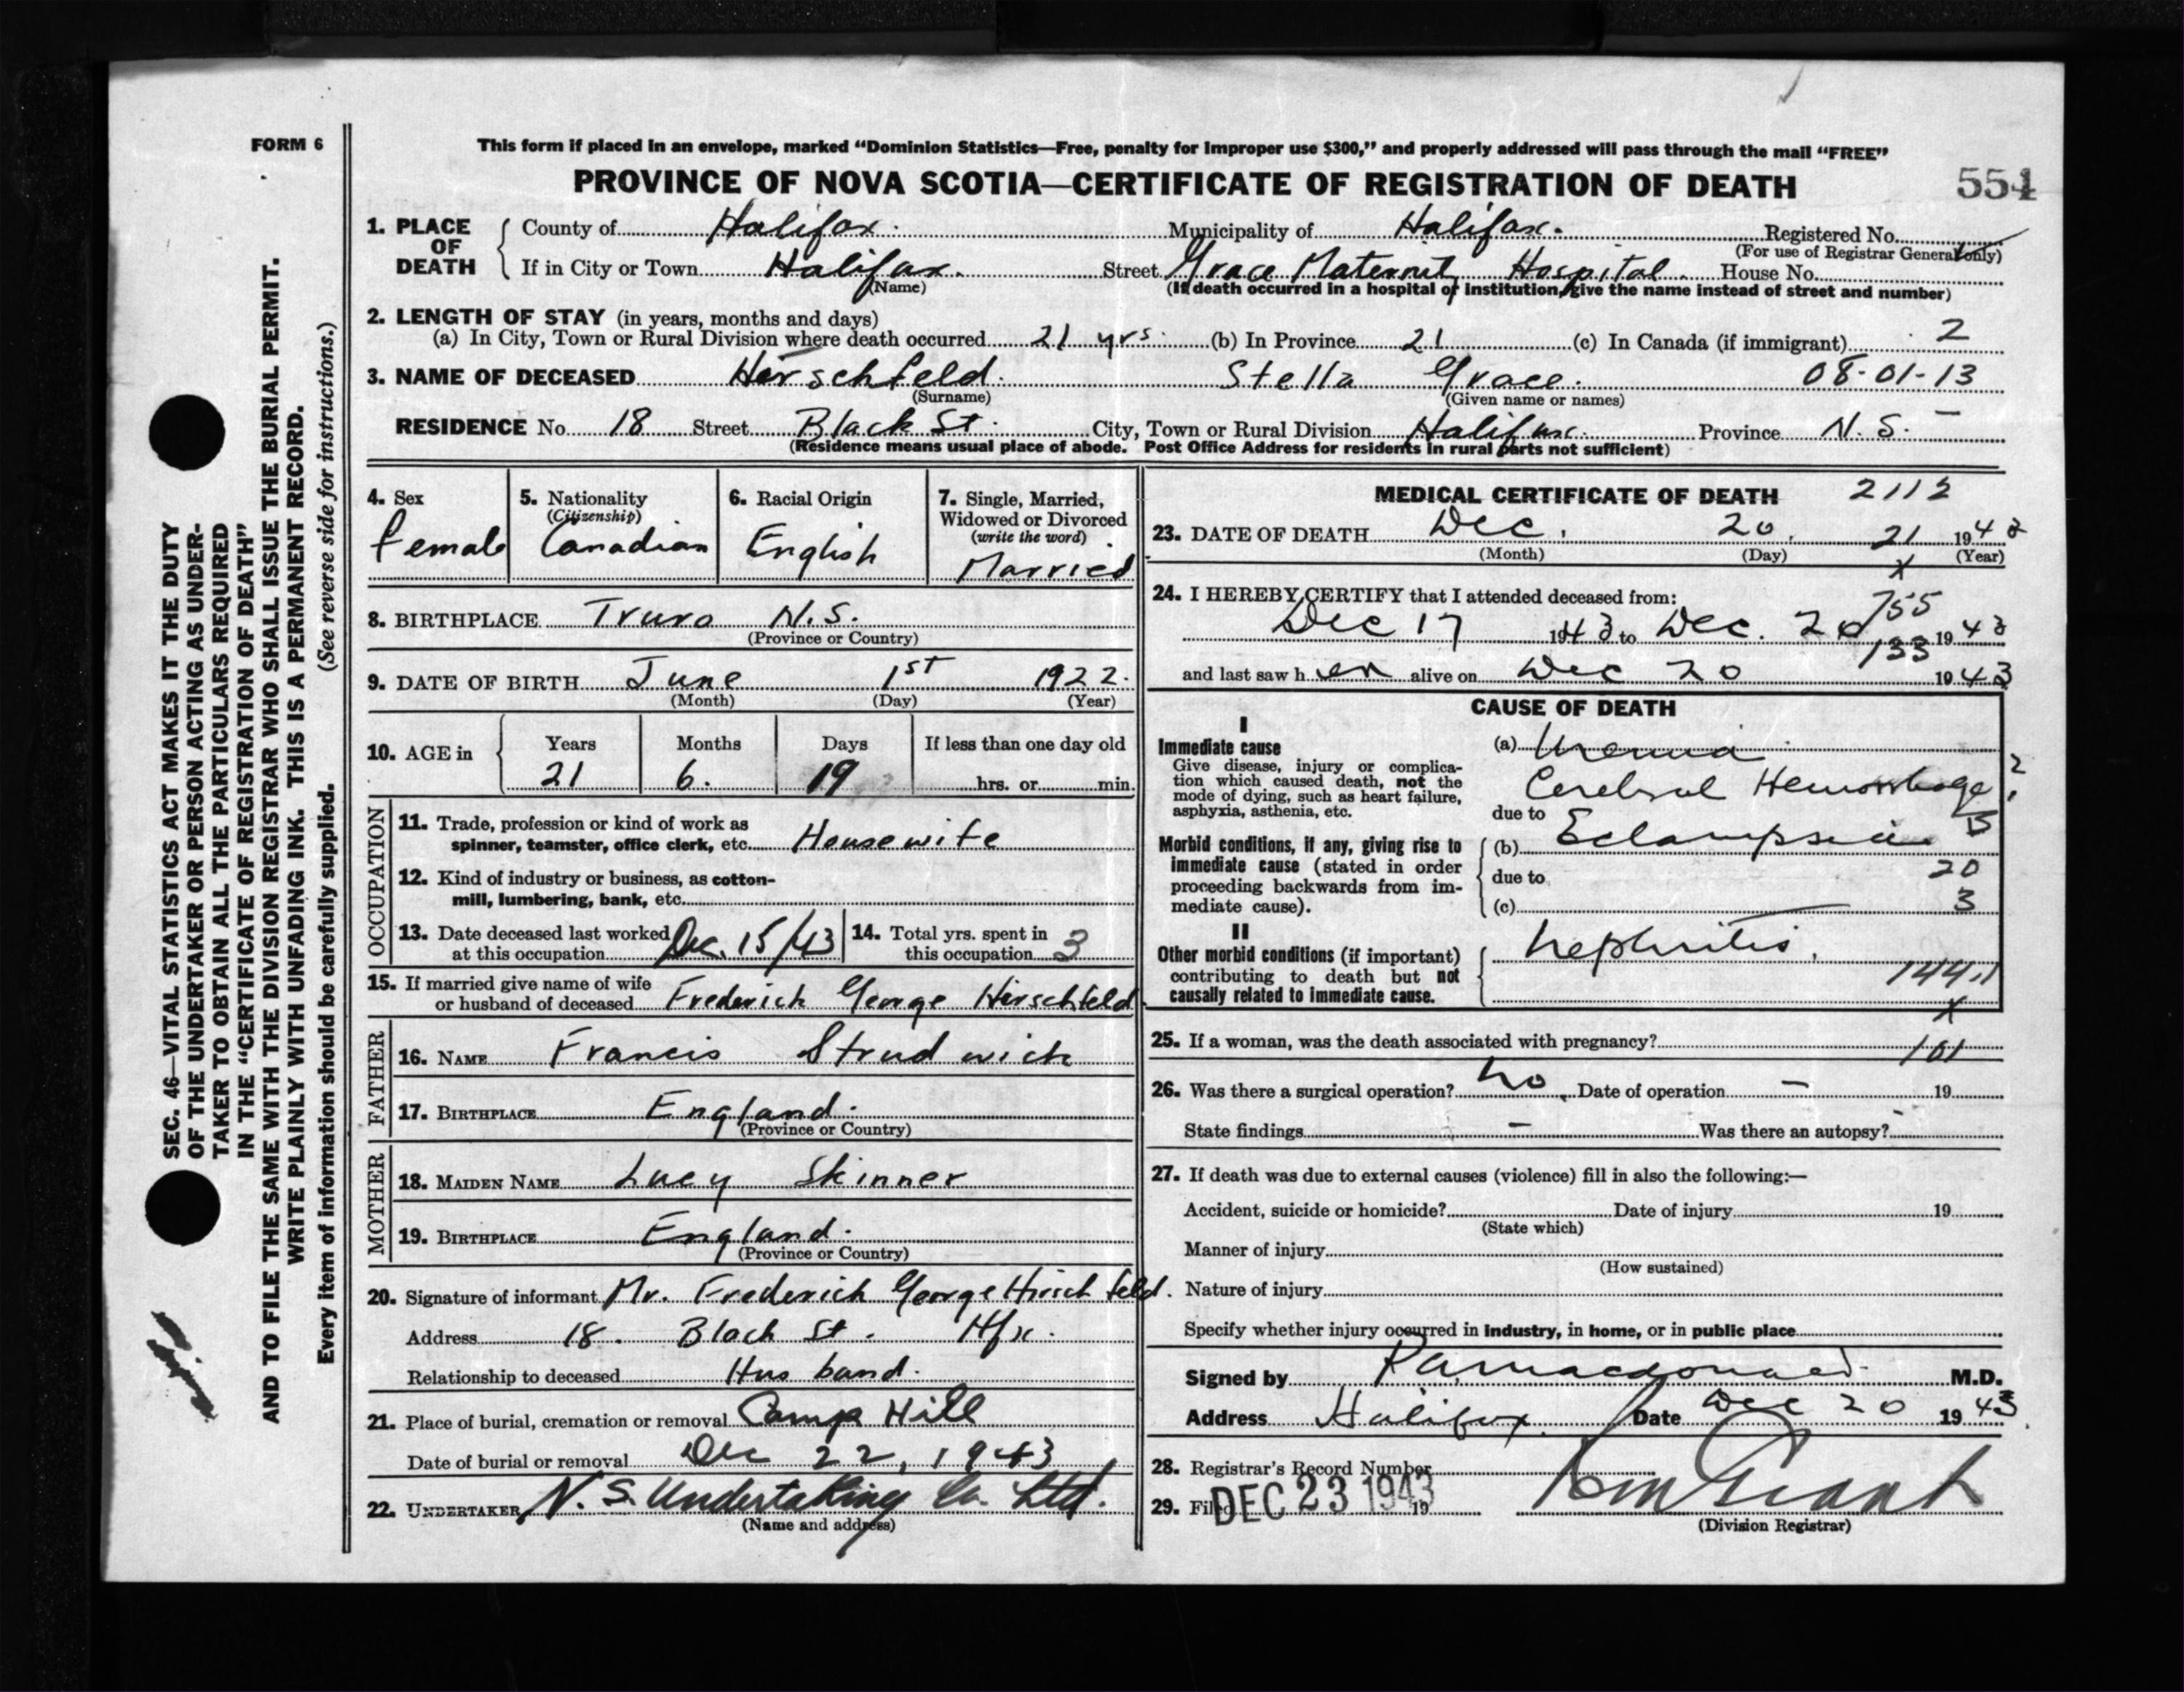 FORM 6
This form if placed in an envelope, marked "Dominion Statistics—Free, penalty for improper use $300," and properly addressed will pass through the mail "FREE"
PROVINCE OF NOVA SCOTIA—CERTIFICATE OF REGISTRATION OF DEATH
551
1. PLACE OF DEATH
County of Halifax. Municipality of Halifax. Registered No.
(For use of Registrar General only)
If in City or Town Halifax. Street Grace Maternity Hospital. House No.
(Name) (If death occurred in a hospital or institution, give the name instead of street and number)
2. LENGTH OF STAY (in years, months and days)
(a) In City, Town or Rural Division where death occurred 21 yrs. (b) In Province 21 (c) In Canada (if immigrant) 2
3. NAME OF DECEASED Hirschfeld. Stella Grace. 08-01-13
(Surname) (Given name or names)
RESIDENCE No. 18 Street Black St. City, Town or Rural Division Halifax. Province N.S. –
(Residence means usual place of abode. Post Office Address for residents in rural parts not sufficient)
4. Sex
female
5. Nationality
(Citizenship)
Canadian
6. Racial Origin
English
7. Single, Married,
Widowed or Divorced
(write the word)
Married
8. BIRTHPLACE Truro N.S.
(Province or Country)
9. DATE OF BIRTH June 1st 1922.
(Month) (Day) (Year)
10. AGE in
Years Months Days If less than one day old
21 6. 19 hrs. or min.
OCCUPATION
11. Trade, profession or kind of work as
spinner, teamster, office clerk, etc. Housewife
12. Kind of industry or business, as cotton-
mill, lumbering, bank, etc.
13. Date deceased last worked
at this occupation Dec. 15/43
14. Total yrs. spent in
this occupation 3
15. If married give name of wife
or husband of deceased Frederich George Hirschfeld
FATHER
16. NAME Francis Strudwick
17. BIRTHPLACE England.
(Province or Country)
MOTHER
18. MAIDEN NAME Lucy Skinner
19. BIRTHPLACE England.
(Province or Country)
20. Signature of informant Mr. Frederich George Hirschfeld.
Address 18. Black St. Hfx.
Relationship to deceased Husband.
21. Place of burial, cremation or removal Camp Hill
Date of burial or removal Dec 22, 1943
22. UNDERTAKER N.S. Undertaking Co. Ltd.
(Name and address)
MEDICAL CERTIFICATE OF DEATH 2112
23. DATE OF DEATH Dec. 20. 21 1943
(Month) (Day) X (Year)
24. I HEREBY CERTIFY that I attended deceased from:
755
Dec 17 1943 to Dec. 20 1943
133
and last saw her alive on Dec 20 1943
CAUSE OF DEATH
I
Immediate cause
Give disease, injury or complica-
tion which caused death, not the
mode of dying, such as heart failure,
asphyxia, asthenia, etc.
(a) Uremia
Cerebral Hemorrhage ?
due to
5
Morbid conditions, if any, giving rise to
immediate cause (stated in order
proceeding backwards from im-
mediate cause).
(b) Eclampsia
due to 20
(c) 3
II
Other morbid conditions (if important)
contributing to death but not
causally related to immediate cause.
Nephritis.
X
25. If a woman, was the death associated with pregnancy? 101
26. Was there a surgical operation? no. Date of operation – 19
State findings – Was there an autopsy?
27. If death was due to external causes (violence) fill in also the following:—
Accident, suicide or homicide? Date of injury 19
(State which)
Manner of injury
(How sustained)
Nature of injury
Specify whether injury occurred in industry, in home, or in public place
Signed by R A Macdonald M.D.
Address Halifax. Date Dec 20 1943.
28. Registrar's Record Number
29. Filed DEC 23 1943 19
(Division Registrar)
SEC. 46—VITAL STATISTICS ACT MAKES IT THE DUTY
OF THE UNDERTAKER OR PERSON ACTING AS UNDER-
TAKER TO OBTAIN ALL THE PARTICULARS REQUIRED
IN THE "CERTIFICATE OF REGISTRATION OF DEATH"
AND TO FILE THE SAME WITH THE DIVISION REGISTRAR WHO SHALL ISSUE THE BURIAL PERMIT.
WRITE PLAINLY WITH UNFADING INK. THIS IS A PERMANENT RECORD.
Every item of information should be carefully supplied. (See reverse side for instructions.)